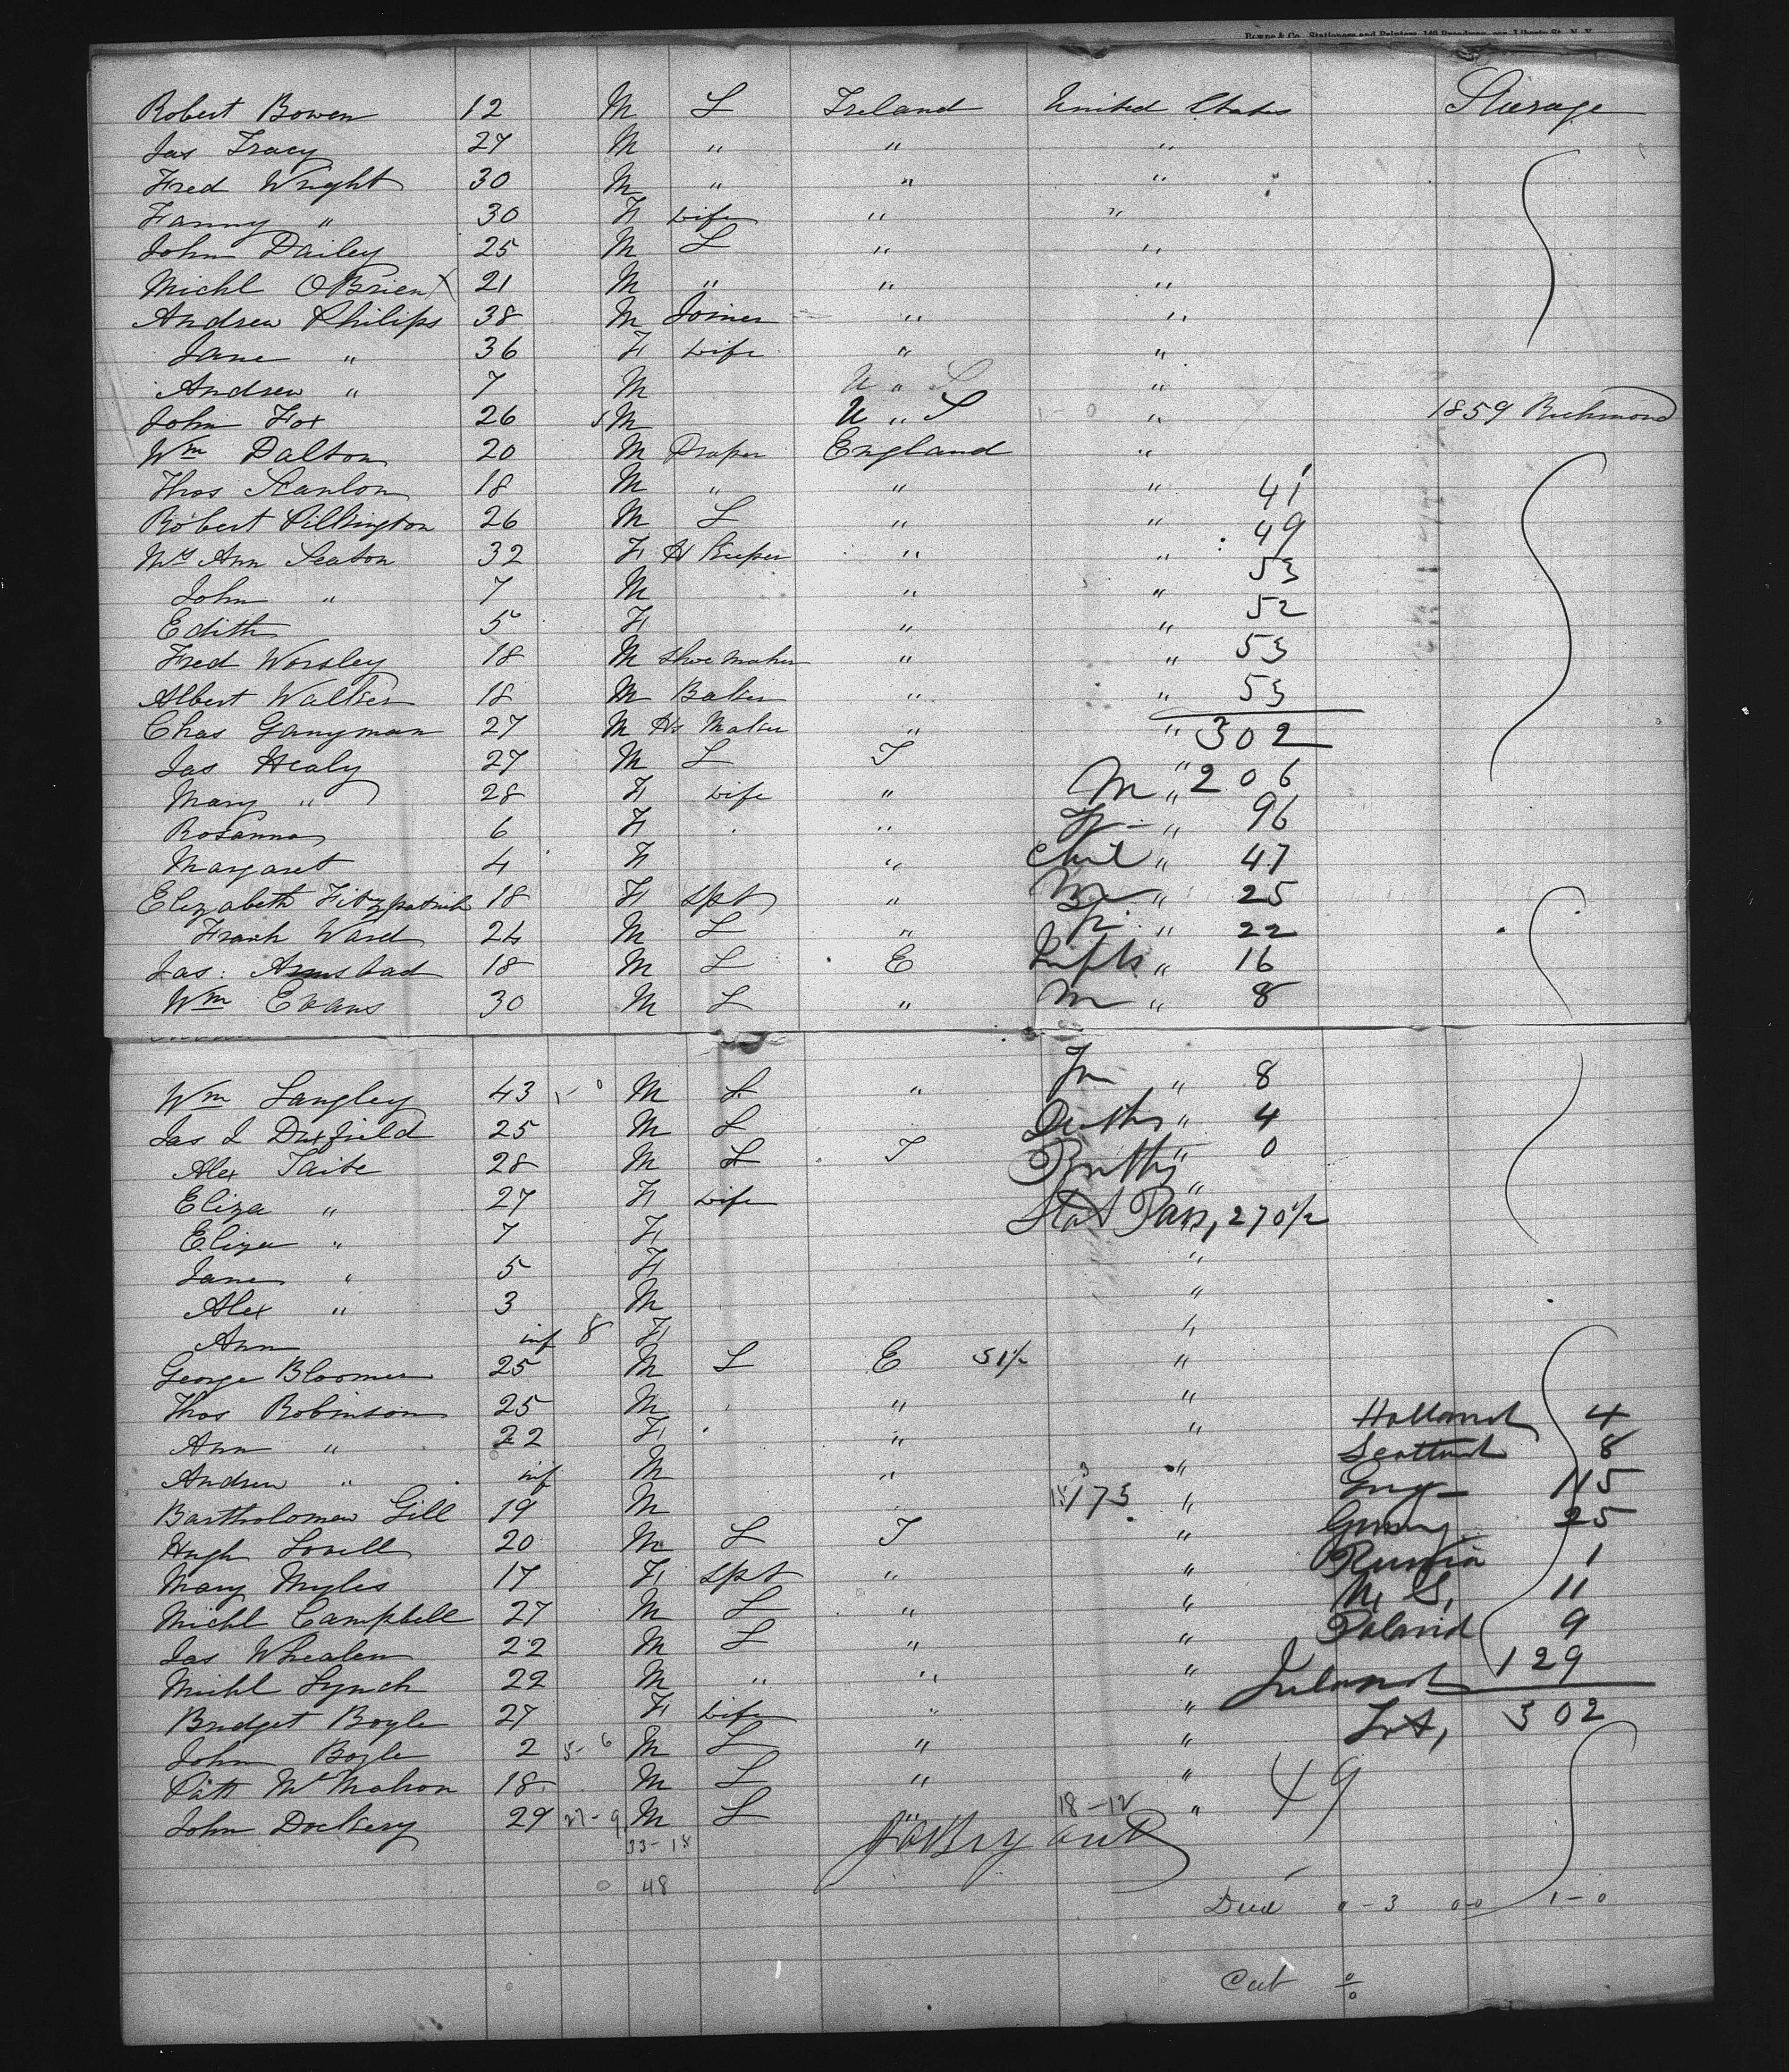 Bowne & Co., Stationers and Printers, 149 Broadway, cor. Liberty St. N. Y.
Robert Bowen 12 M L Ireland United States Steerage
Jas Tracy 27 M " " "
Fred Wright 30 M " " "
Fanny " 30 F wife " "
John Dailey 25 M L " "
Michl OBrien X 21 M " " "
Andrew Philips 38 M Joiner " "
Jane " 36 F wife " "
Andrew " 7 M U " S "
John Fox 26 M U " S " 1859 Richmond
Wm Dalton 20 M Draper England "
Thos Scanlon 18 M " " " 41
Robert Pilkington 26 M L " " 49
Mrs Ann Seaton 32 F H Keeper " " 53
John " 7 M " " 52
Edith 5 F " "
Fred Worsley 18 M Shoe maker " " 53
Albert Walker 18 M Baker " " 53
Chas Ganyman 27 M Maker " " 302
Jas Healy 27 M L I "
Mary " 28 F wife " M " 206
Rosanna 6 F " F " 96
Margaret 4 F " Chil " 47
Elizabeth Fitzpatrick 18 F Spt " M " 25
Frank Ward 24 M L " F " 22
Jas. Armstad 18 M L E Infts " 16
Wm Evans 30 M L " M " 8
Wm Langley 43 M L " Fm " 8
Jas J Duxfield 25 M L " Deaths " 4
Alex Taite 28 M L I Births " 0
Eliza " 27 F wife "
Stat Pass, 270 1/2
Eliza " 7 F "
Jane " 5 F "
Alex " 3 M "
Ann inf 8 F "
George Bloomer 25 M L E 51/2 "
Thos Robinson 25 M " "
Holland 4
Ann " 22 F " "
Scotland 8
Andrew " inf M " "
173 Eng 115
Bartholomew Gill 19 M "
Germany 25
Hugh Lovell 20 M L I "
Russia 1
Mary Myles 17 F Spt " "
U. S. 11
Michl Campbell 27 M L " "
Poland 9
Jas Whealen 22 M L " "
Ireland 129
Michl Lynch 22 M " " "
Bridget Boyle 27 F wife " "
Tot, 302
John Boyle 2 5-6 M L " "
Patt McMahon 18 M L " " 49
John Dockery 29 27-9 M L 18-12 "
33-18
48
Died 0-3 0-0 1-0
Cab 0/0